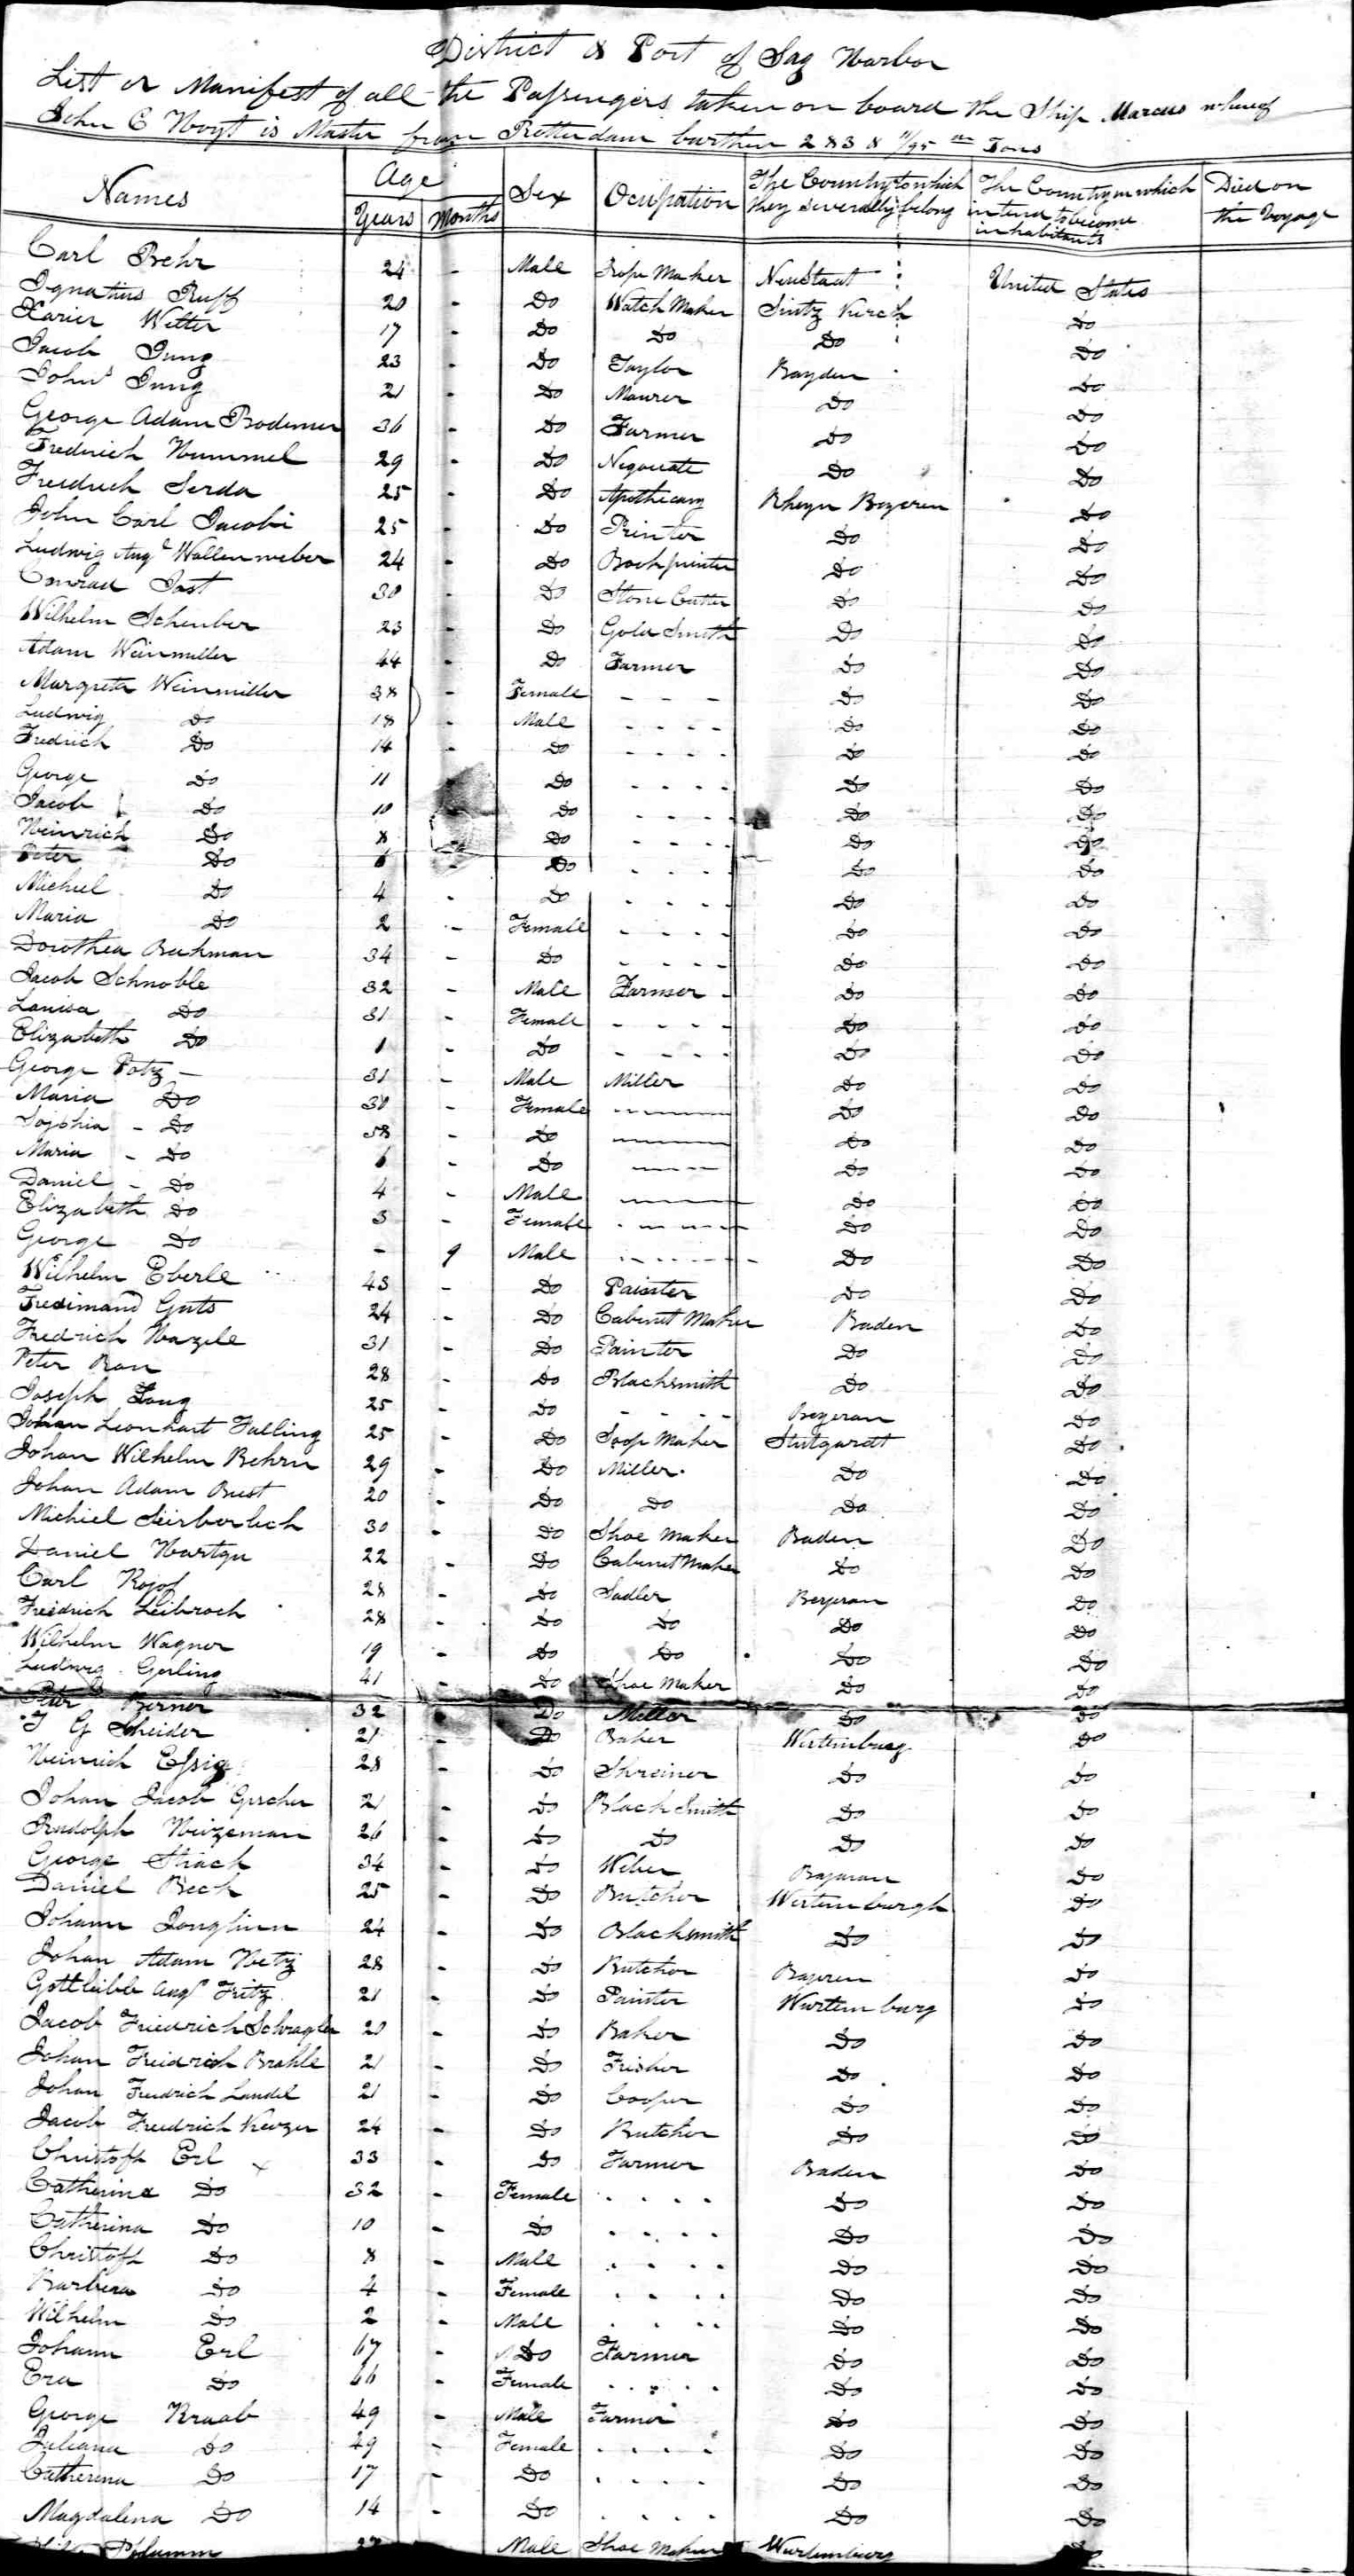 District & Port of Sag Harbor
List or Manifest of all the Passengers taken on board the Ship Marcus whereof
John E Hoyt is Master from Rotterdam burthen 283 & 11/95 Tons
Names Age Years Months Sex Occupation The Country to which they severally belong The Country in which intend to become inhabitants Died on the Voyage
Carl Behr 24 - Male Rope Maker Neustadt United States
Ignatius Ruff 20 - Do Watch Maker Sintz Kirch Do
Xarier Wetter 17 - Do Do Do Do
Jacob Jung 23 - Do Taylor Bayden Do
John Jung 21 - Do Maurer Do Do
George Adam Bodemer 36 - Do Farmer Do Do
Frederich Hummel 29 - Do Negociate Do Do
Freidrich Serda 25 - Do Apothecary Rheyn Beyeren Do
John Carl Jacobi 25 - Do Printer Do Do
Ludwig Augt Wollenweber 24 - Do Bookprinter Do Do
Conrad Jost 30 - Do Stone Cutter Do Do
Wilhelm Scheuber 23 - Do Gold Smith Do Do
Adam Weinmiller 44 - Do Farmer Do Do
Margreta Weinmiller 38 - Female - - - Do Do
Ludwig Do 18 - Male - - - - Do Do
Fredrich Do 14 - Do - - - - Do Do
George Do 11 Do - - - - Do Do
Jacob Do 10 Do - - - - Do Do
Heinrich Do 8 Do - - - - Do Do
Peter Do 6 - Do - - - - Do Do
Michiel Do 4 - Do - - - - Do Do
Maria Do 2 - Female - - - - Do Do
Dorothea Beckman 34 - Do - - - - Do Do
Jacob Schnoble 32 - Male Farmer - Do Do
Louisa Do 31 - Female - - - - Do Do
Elizabeth Do 1 - Do - - - - Do Do
George Potz - 31 - Male Miller Do Do
Maria Do 30 - Female Do Do
Sophia - Do 58 - Do Do Do
Maria - Do 6 - Do Do Do
Daniel - Do 4 - Male Do Do
Elizabeth Do 3 - Female Do Do
George Do - 9 Male Do Do
Wilhelm Eberle 43 - Do Painter Do Do
Fredimand Guts 24 - Do Cabinet Maker Baden Do
Fredrich Hazele 31 - Do Painter Do Do
Peter Rau 28 - Do Blacksmith Do Do
Joseph Long 25 - Do - - - - Beyeran Do
Johan Leonhart Falling 25 - Do Soop Maker Stutgardt Do
Johan Wilhelm Behrn 29 - Do Miller Do Do
Johan Adam Bust 20 - Do Do Do Do
Michiel 30 - Do Shoe Maker Baden Do
Daniel 22 - Do Cabinet Maker Do Do
Carl 28 - Do Sadler Beyeran Do
Freidrich Leibrock 28 - Do Do Do Do
Wilhelm Wagner 19 - Do Do Do Do
Ludwig Gerling 41 - Do Shoe Maker Do Do
Peter Berner 32 Do Miller Do Do
J G Sheider 21 - Do Baker Wirtemburg Do
Heinrich Essig 28 - Do Shreiner Do Do
Johan Jacob Gerscher 21 - Do Black Smith Do Do
Rudolph Heizeman 26 - Do Do Do Do
George Strack 34 - Do Weber Bayeran Do
Daniel Beck 25 - Do Butcher Wirtemburgh Do
Johann 24 - Do Blacksmith Do Do
Johan Adam Hetz 28 - Do Butcher Bayeren Do
Gottleibb Augt Fritz 21 - Do Painter Wurtemburg Do
Jacob Friedrich Schragler 20 - Do Baker Do Do
Johan Freidrich Brahle 21 - Do Frisher Do Do
Johan Freidrich Landel 21 - Do Cooper Do Do
Jacob Freidrich Kevzer 24 - Do Butcher Do Do
Christoph Erl 33 - Do Farmer Baden Do
Catherina Do 32 - Female . . . . Do Do
Catherina Do 10 - Do . . . . Do Do
Christoph Do 8 - Male . . . . Do Do
Barbera Do 4 - Female . . . . Do Do
Wilhelm Do 2 - Male . . . . Do Do
Johann Erl 67 - Do Farmer Do Do
Eva Do 66 - Female . . . . Do Do
George Kraab 49 - Male Farmer Do Do
Juliana Do 49 - Female . . . . Do Do
Catherina Do 17 - Do . . . . Do Do
Magdalena Do 14 - Do . . . . Do Do
Male Shoe Maker Wurtemburg